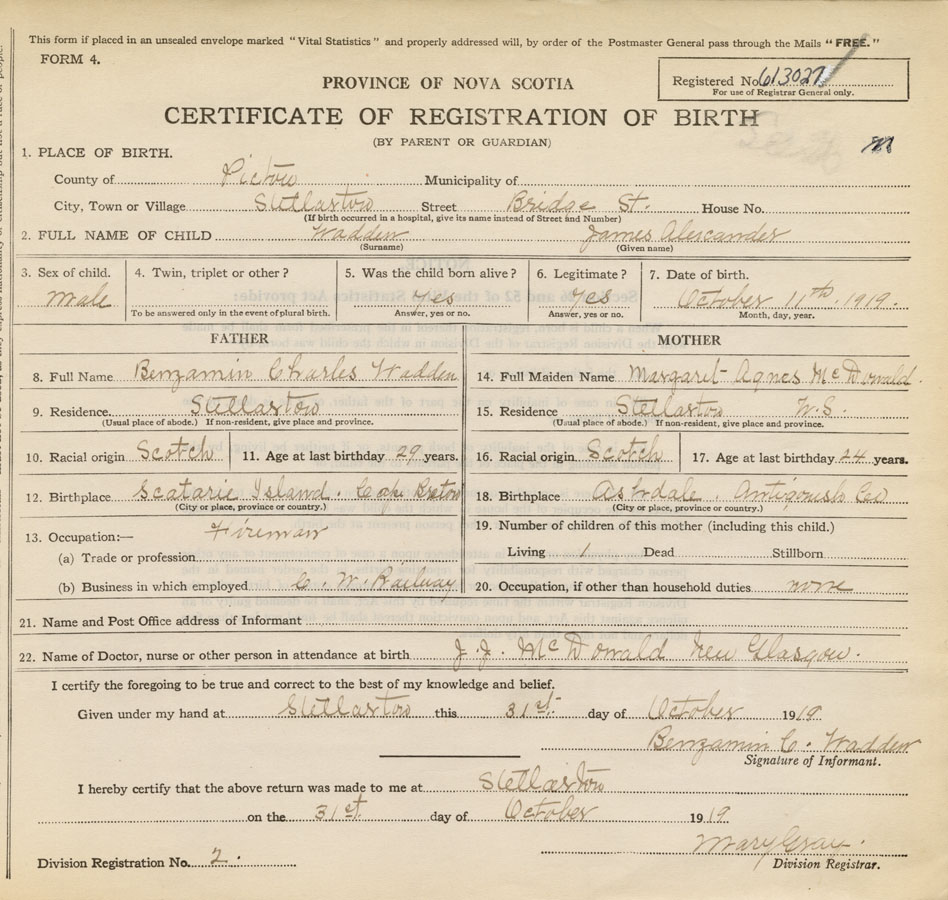 This form if placed in an unsealed envelope marked "Vital Statistics" and properly addressed will, by order of the Postmaster General pass through the Mails "FREE."
FORM 4.
Registered No. 613027
For use of Registrar General only.
PROVINCE OF NOVA SCOTIA
CERTIFICATE OF REGISTRATION OF BIRTH
(BY PARENT OR GUARDIAN)
1. PLACE OF BIRTH.
County of Pictou Municipality of
City, Town or Village Stellarton Street Bridge St. House No.
(If birth occurred in a hospital, give its name instead of Street and Number)
2. FULL NAME OF CHILD Wadden James Alexander
(Surname) (Given name)
3. Sex of child. 4. Twin, triplet or other? 5. Was the child born alive? 6. Legitimate? 7. Date of birth.
Male Yes Yes October 11th, 1919.
To be answered only in the event of plural birth. Answer, yes or no. Answer, yes or no. Month, day, year.
FATHER MOTHER
8. Full Name Benjamin Charles Wadden 14. Full Maiden Name Margaret Agnes McDonald
9. Residence. Stellarton 15. Residence Stellarton N.S.
(Usual place of abode.) If non-resident, give place and province. (Usual place of abode.) If non-resident, give place and province.
10. Racial origin Scotch 11. Age at last birthday 29 years. 16. Racial origin Scotch 17. Age at last birthday 24 years.
12. Birthplace Scatarie Island. Cape Breton 18. Birthplace Ashdale. Antigonish Co
(City or place, province or country.) (City or place, province or country.)
13. Occupation:— Fireman 19. Number of children of this mother (including this child.)
(a) Trade or profession Living 1 Dead Stillborn
(b) Business in which employed Railway 20. Occupation, if other than household duties none
21. Name and Post Office address of Informant
22. Name of Doctor, nurse or other person in attendance at birth J. J. McDonald New Glasgow.
I certify the foregoing to be true and correct to the best of my knowledge and belief.
Given under my hand at Stellarton this 31st. day of October 1919.
Benjamin C. Wadden
Signature of Informant.
I hereby certify that the above return was made to me at Stellarton
on the 31st. day of October 1919.
Mary Gray.
Division Registration No. 2. Division Registrar.